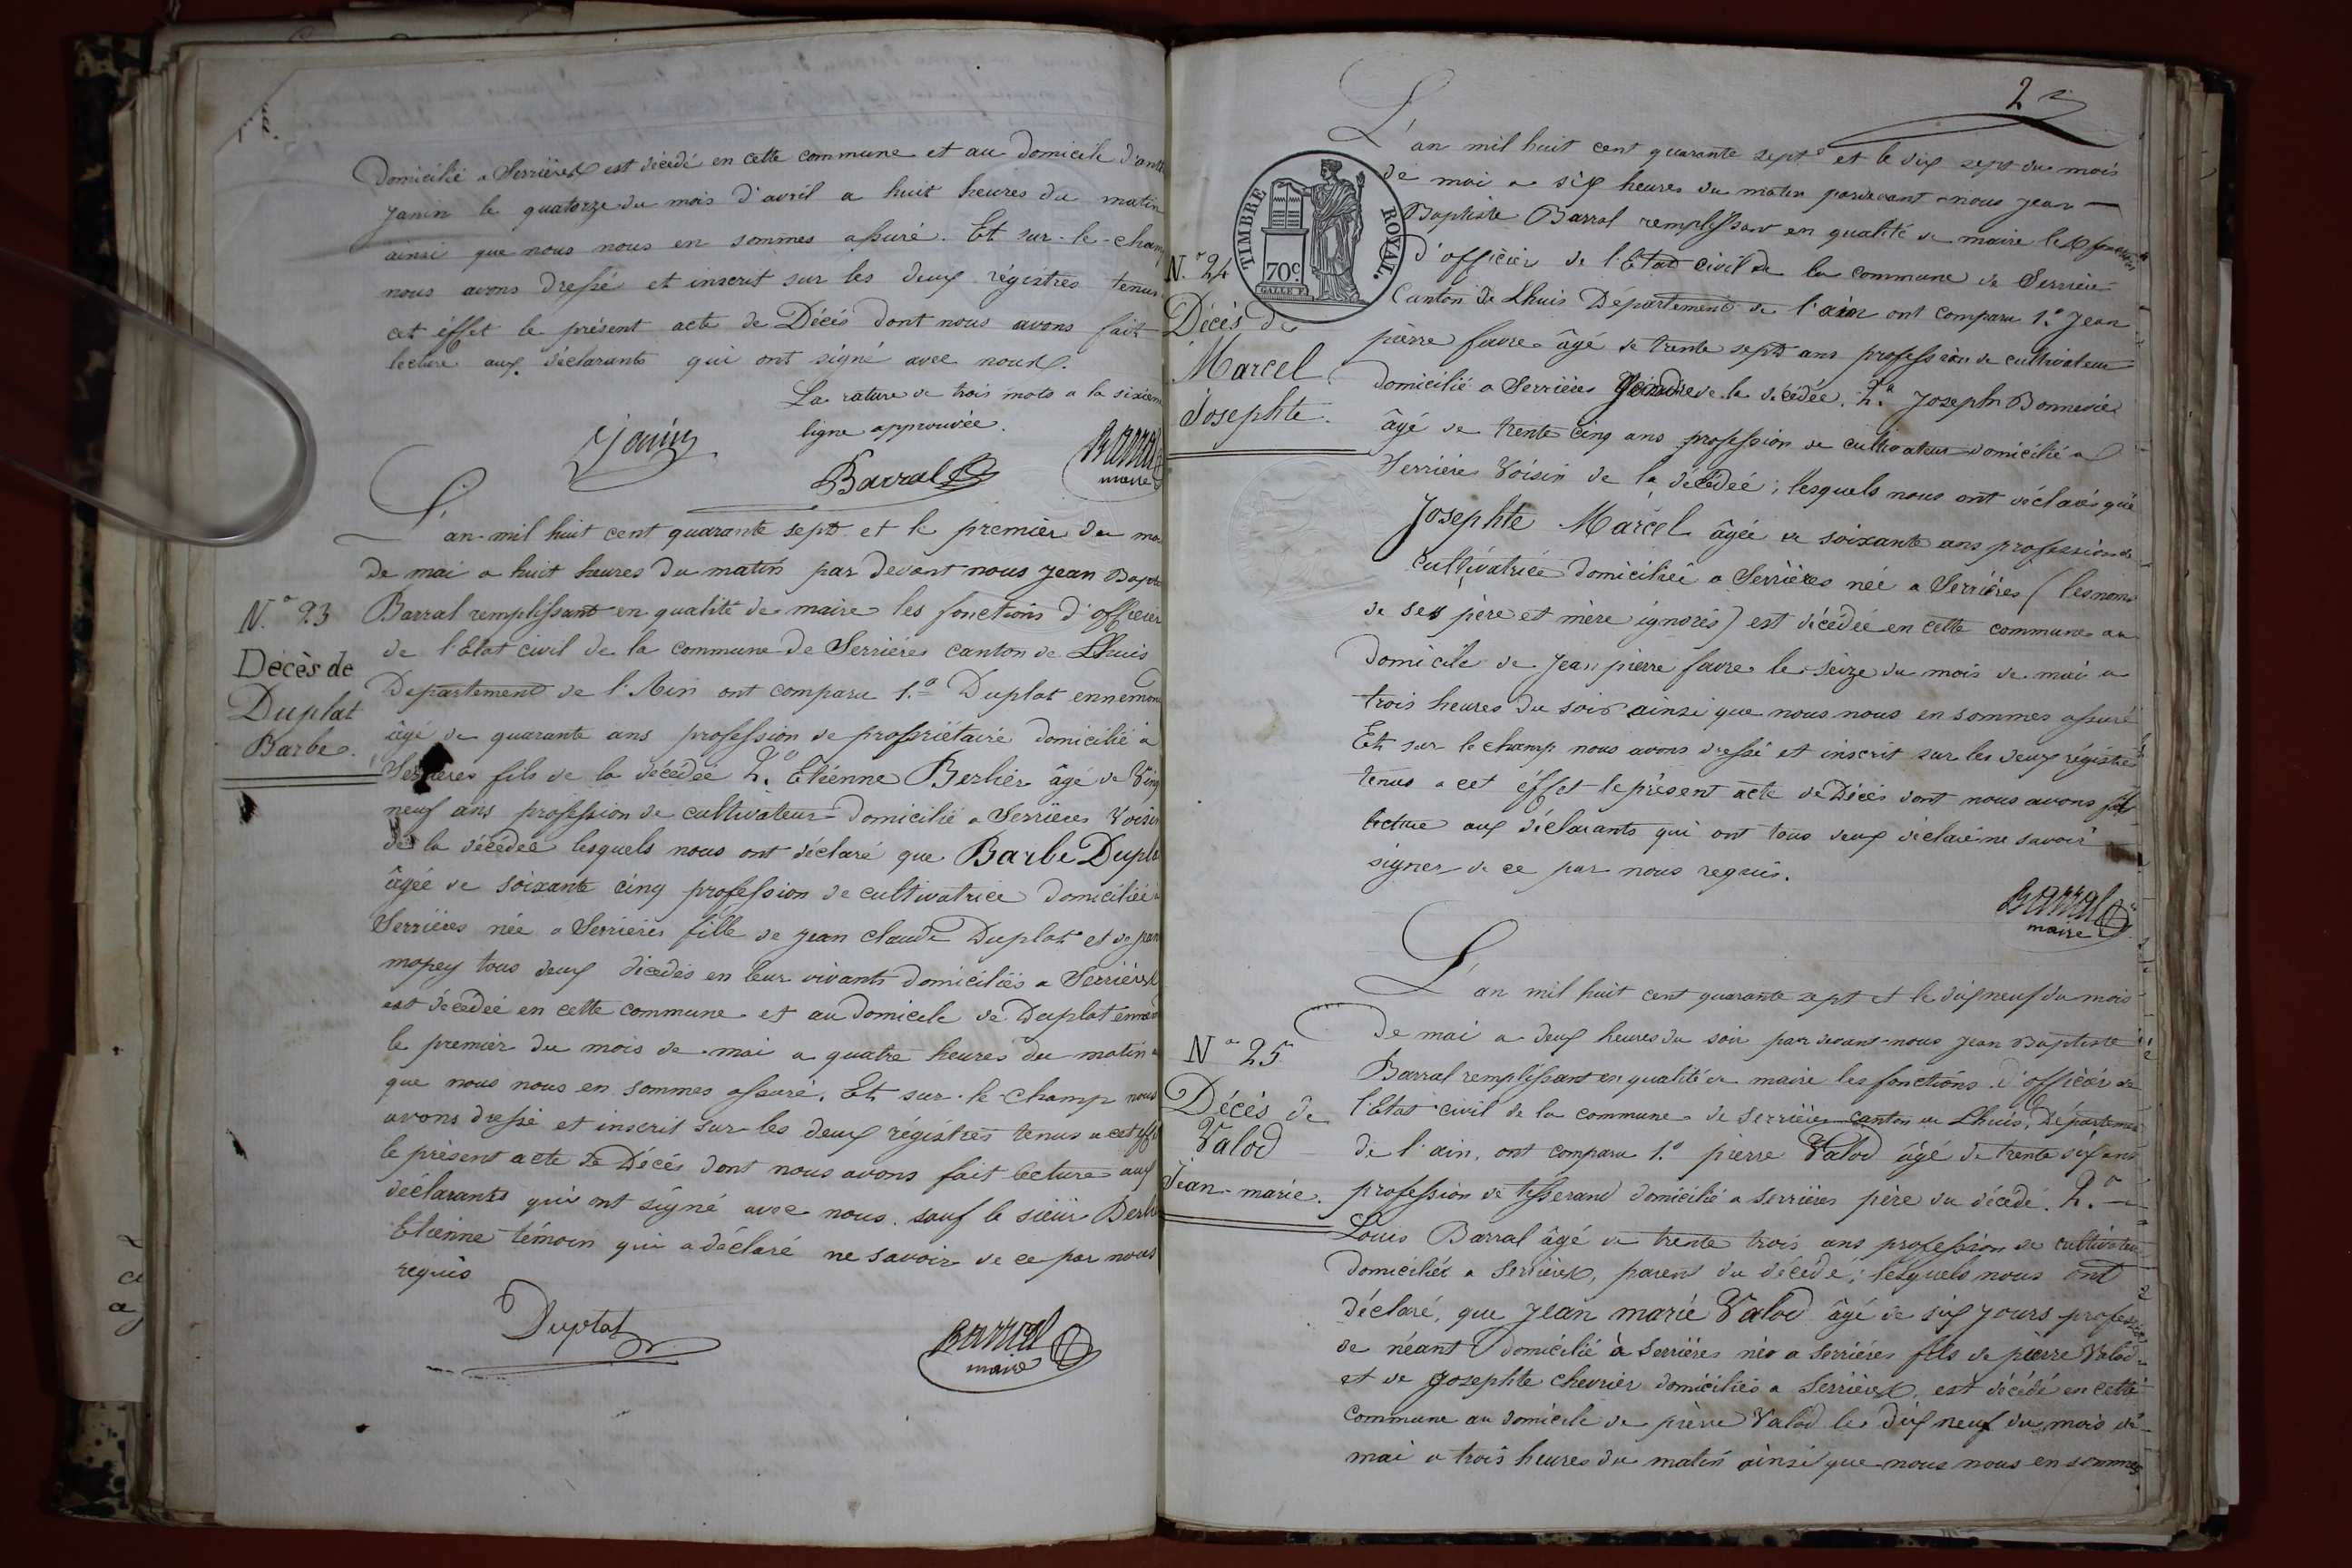 Domicilié a Serrières est décédé en cette commune et au domicile d'
Janin le quatorze du mois d'avril a huit heures du matin
ainsi que nous nous en sommes assuré. Et sur-le-champ
nous avons dressé et inscrit sur les deux régistres tenus
cet éffet le présent acte de Décés dont nous avons fait
lecture aux déclarants qui ont signé avec nous.
La rature de trois mots a la sixiem
ligne approuvée.
Janin
Barral
Barral
maire
N.o 23
Décès de
Duplat
Barbe.
L'an mil huit cent quarante sept et le premier du mo
de mai a huit heures du matin par devant nous Jean Bapt
Barral remplissant en qualité de maire les fonctions d'officier
de l'Etat civil de la commune de Serrières canton de Lhuis
Departement de l'Ain ont comparu 1.o Duplat ennemon
âgé de quarante ans profession de propriétaire domicilié a
Serrieres fils de la décédée 2.o Etiénne Berlier âgé de Ving
neuf ans profession de cultivateur domicilié a Serrières Voisin
de la décédée lesquels nous ont déclaré que Barbe Dupla
âgée de soixante cinq profession de cultivatrice domiciliée a
Serrières née a Serrières fille de Jean claude Duplat et de
mopey tous deux dicédés en leur vivants domiciliés a Serrières
est décédée en cette commune et au domicile de Duplat
le premier du mois de mai a quatre heures du matin a
que nous nous en sommes assuré. Et sur-le-champ nous
avons dressé et inscrit sur les deux régistres tenus a cet eff
le présent acte de Décés dont nous avons fait lecture aux
déclarants qui ont signé avec nous sauf le sieur Berli
Etienne témoin qui a déclaré ne savoir de ce par nous
requis
Duplat
Barral
maire
2
L'an mil huit cent quarante sept et le dix sept du mois
de mai a six heures du matin pardevant nous jean
Baptiste Barral remplissant en qualité de maire les fonctions
d'officier de l'Etat civil de la commune de Serrière
Canton de Lhuis Département de l'ain ont comparu 1.o Jean
TIMBRE ROYAL.
70c
GALLE F.
N.o 24
Décès de
Marcel
Josephte.
pierre favre âgé de trente sept ans profession de cultivateur
domicilié a Serrières de la décédée. 2.o Joseph
âgé de trente cinq ans profession de cultivateur domicilié a
Serrières Voisin de la décédée; lesquels nous ont déclaré que
Josephte Marcel âgée de soixante ans profession de
cultivatrice domiciliée a Serrières née a Serrières (les noms
de ses père et mère ignorés) est décédée en cette commune au
domicile de Jean pierre favre le seize du mois de mai a
trois heures du soir ainsi que nous nous en sommes assuré
Et sur le champ nous avons dressé et inscrit sur les deux régistres
tenus a cet éffet le présent acte de Décés dont nous avons fait
lecture aux déclarants qui ont tous deux déclaré ne savoir
signer de ce par nous requis.
Barral
maire
N.o 25
Décès de
Valod
Jean-marie.
L'an mil huit cent quarante sept et le dix neuf du mois
de mai a deux heures du soir par devant nous Jean Baptiste
Barral remplissant en qualité de maire les fonctions d'officier de
l'Etat civil de la commune de Serrières canton de Lhuis, Départeme
de l'ain, ont comparu 1.o pierre Valod âgé de trente six ans
profession de tisserand domicilié a Serrières père du décédé. 2.o
Louis Barral âgé de trente trois ans profession de cultivateur
domicilié a Serrières, parent du décédé; lesquels nous ont
déclaré, que Jean marie Valod âgé de six jours profession
de néant domicilié à Serrières née a Serrières fils de pierre Valod
et de Josephte chevrier domiciliés a Serrières, est décédé en cette
commune au domicile de pierre Valod le dix neuf du mois de
mai a trois heures du matin ainsi que nous nous en sommes